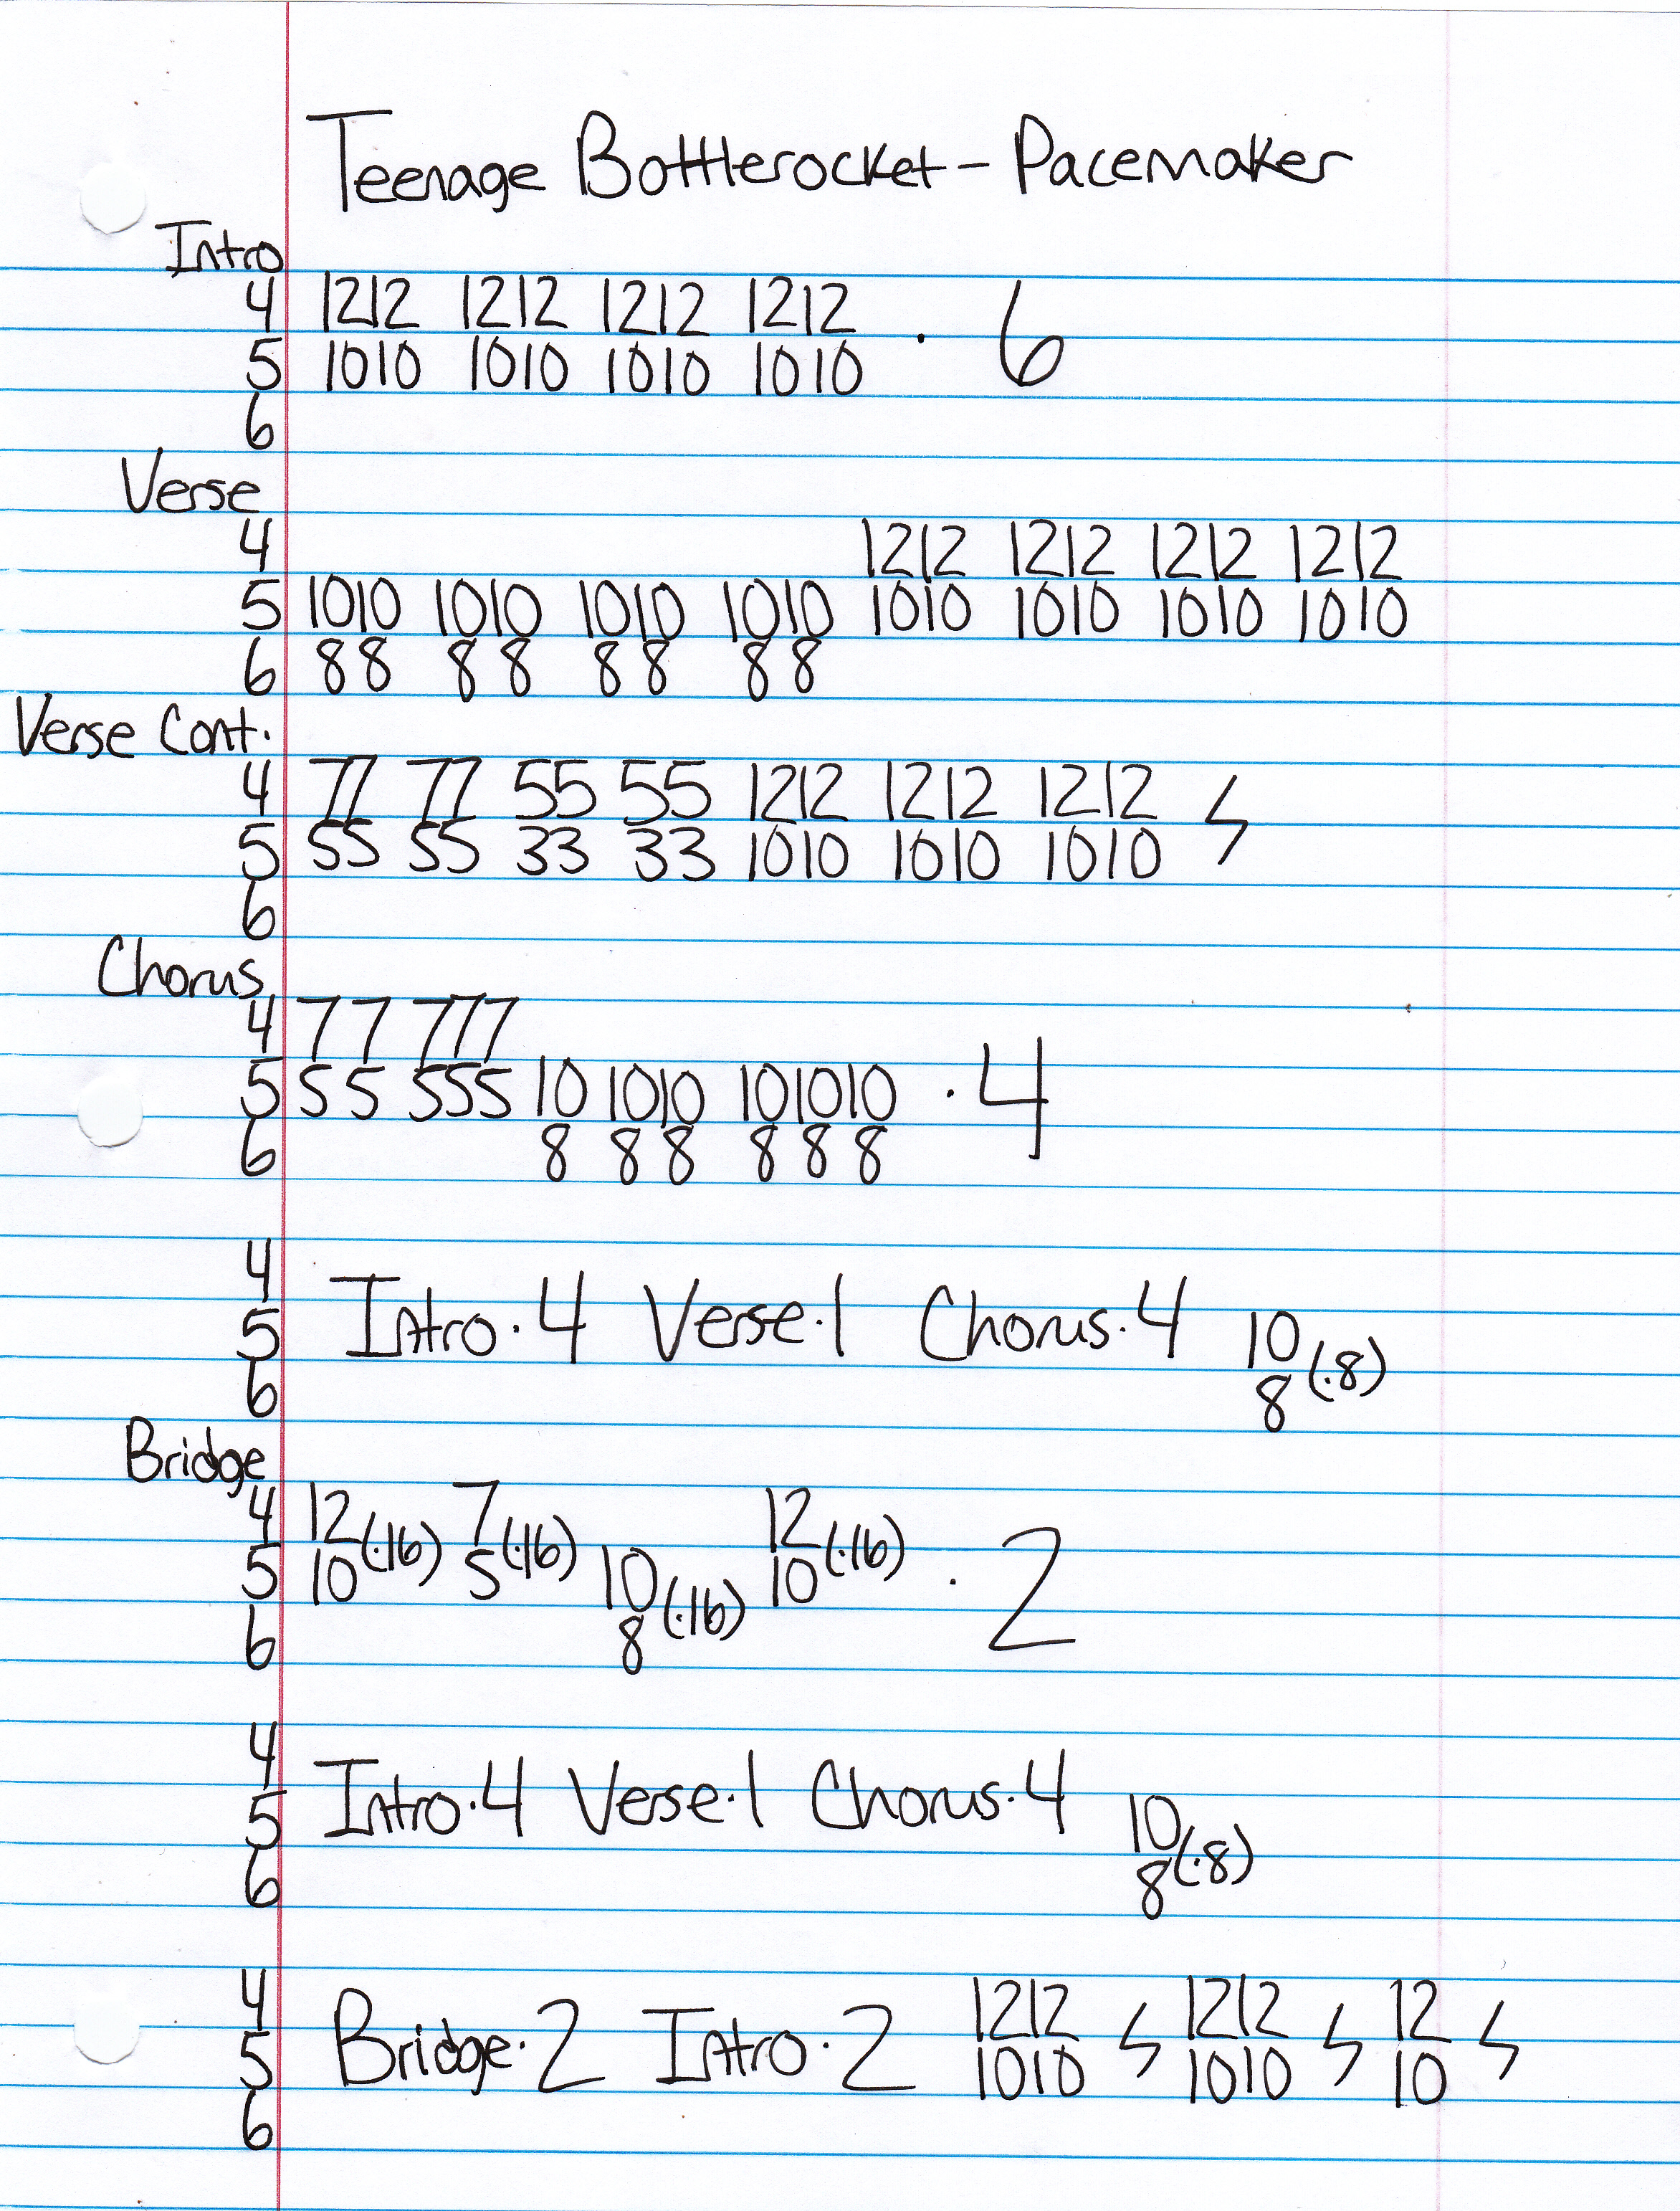 Teenage Bottlerocket - Pacemaker
Intro
4 1212 1212 1212 1212 · 6
5 1010 1010 1010 1010
6
Verse
4 1212 1212 1212 1212
5 1010 1010 1010 1010 1010 1010 1010 1010
6 88 88 88 88
Verse Cont.
4 77 77 55 55 1212 1212 1212
5 55 55 33 33 1010 1010 1010
6
Chorus
4 7 7 777
5 5 5 555 10 1010 101010 · 4
6 8 8 8 8 8 8
4
5 Intro · 4 Verse · 1 Chorus · 4 10 (·8)
6 8
Bridge
4 12 (·16) 7 (·16) 12 (·16)
5 10 5 10 (·16) 10 · 2
6 8
4
5 Intro · 4 Verse · 1 Chorus · 4 10 (·8)
6 8
4 1212 1212 12
5 Bridge · 2 Intro · 2 1010 1010 10
6